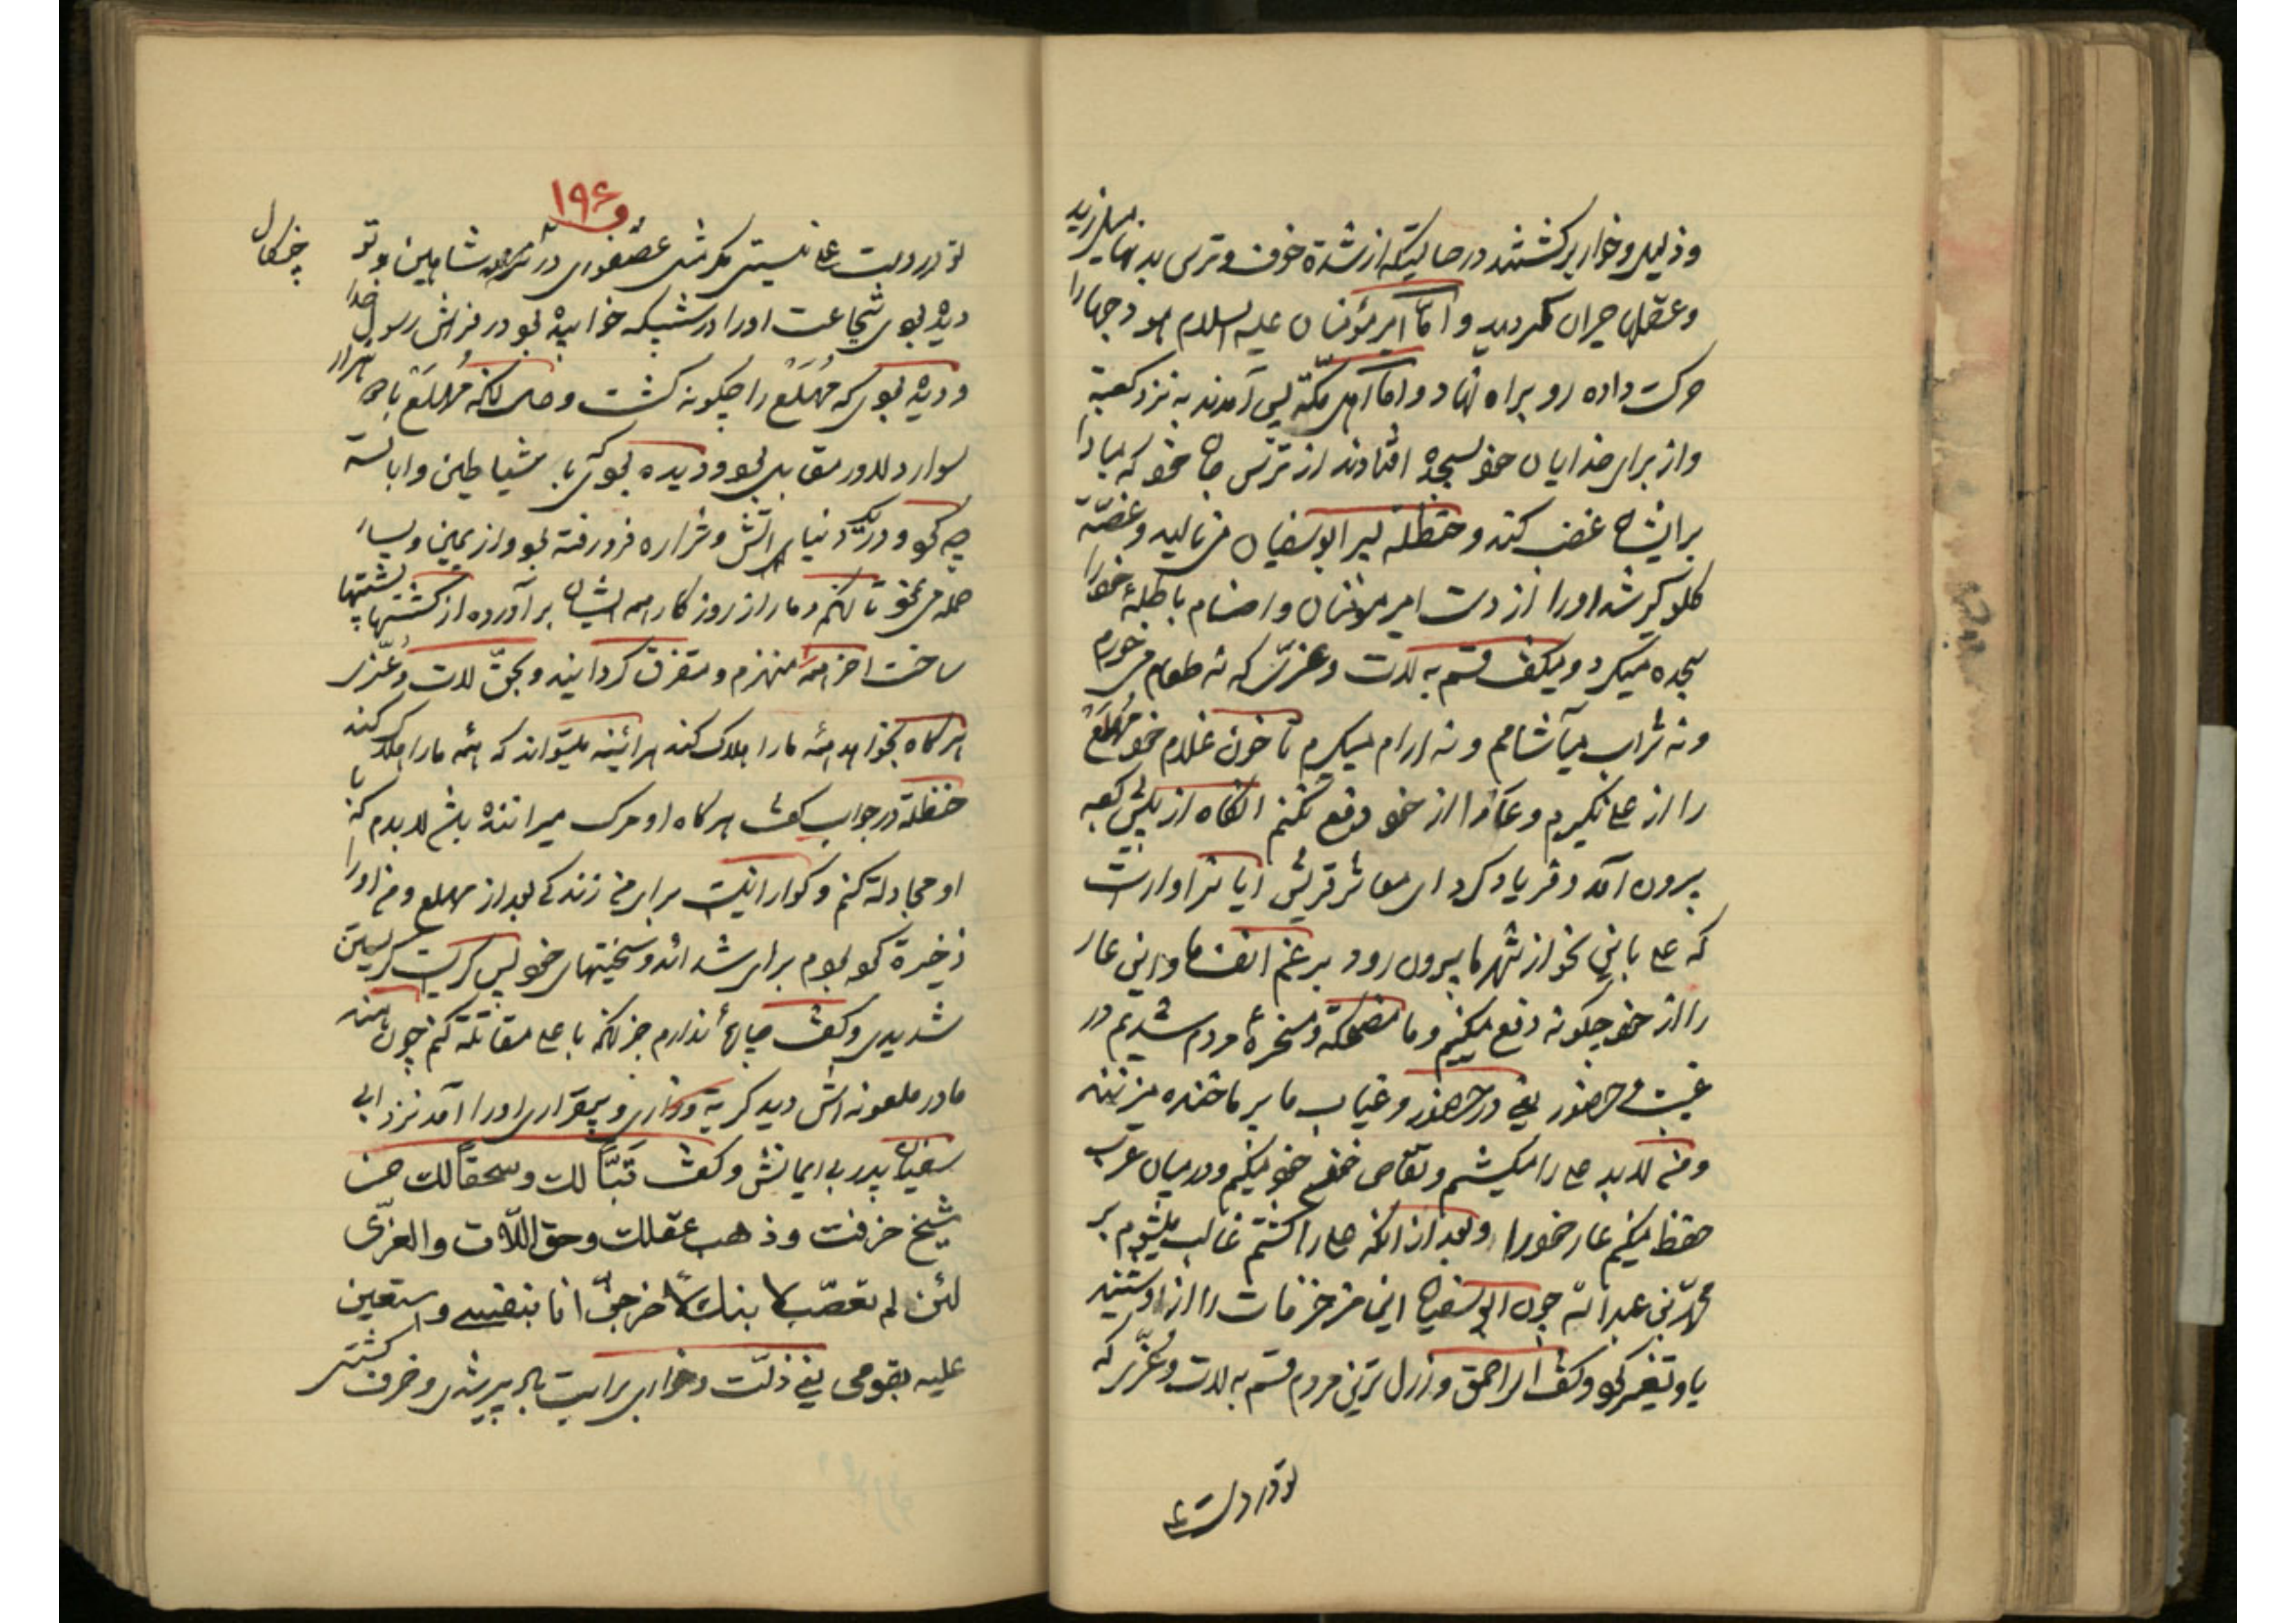 وذلیل و خوار برکشتند در حالتیکه از شدة خوف و ترس بدنها میلرزید
و عقلها حیران کردید و امّا امیرمؤمنان علیه السلام هودجها را
حرکت داده رو براه نهاد و امّا اهل مکّه پس آمدند به نزد کعبة
و از برای خدایان خو بسجده افتادند از ترس جان خو که مبادا
بر ایشان غضب کند و حنظلة پسر ابوسفیان می نالید و غصّه
کلو کیر شد اورا از دست امیرمؤمنان و اصنام باطلهٔ خودرا
سجده میکرد و میکفت قسم به لات و عزّی که نه طعام می خورم
و نه شراب میآشامم و نه ارام میکیرم تا خون غلام خو مُهَلَّع
را از علی نکیرم و عار را از خو دفع نکنم انکاه از پیش کعبه
بیرون آمد و فریاد کرد ای معاشر قریش ایا سزاوار است
که علی باین نحو از شهر ما بیرون رود برغم انف ما و این عار
را از خو چکونه دفع میکنیم و ما مضحکة و مسخرهٔ مردم شدیم در
غیب و حضور یعنی در حضور و غیاب ما بر ما خنده میزنند
و من لابد علی را میکشم و تقاص خون خو میکنم و در میان عرب
حفظ میکنم عار خودرا و بعد از انکه علی را کشتم غالب میشوم بر
محمّد بن عبد اللّه چون ابوسفیان این مزخرفات را از او شنید
باو تغیر کرد و کفت ای احمق و ارذل ترین مردم قسم به لات و عُزّی که
تو در دست علی
۱۹۶
تو در دست علی نیستی مکر مثل عصفوری در شاهین و تو
چنکال
دیده بودی شجاعت اورا در شبیکه خوابیده بو در فراش رسول خدا
و دیده بودی که مُهَلَّع را چکونه کشت و حال انکه مُهَلَّع با هزار
سوار دلاور مقابل بو و دیده بودی با شیاطین و ابالسة
چه کرد و در یک دنیای اتش و شراره فرو رفته بو و از یمین و یسار
حمله می نمو تا انکه دمار از روزکار همه ایشان برآورده از کشتها پشتها
ساخت اخر همه منهزم و متفرق کردانید و بحقّ لات و عُزّی
هرکاه بخواهد همه مارا هلاک کند هرآئینه میتواند که همه مارا هلاک کند
حنظلة در جواب کفت هرکاه او مرک میراننده باشد لابدم که با
او مجادلة کنم و کوارا نیست برای من زندکی بعد از مهلع و من اورا
ذخیرة کرده بودم برای شدائد و سختیهای خو پس کریست کریستن
شدیدی و کفت چارهٔ ندارم جز انکه با علی مقاتلة کنم چون هند
مادر ملعونه اش دید کریه و زاری و بیقراری اورا آمد نزد ابی
سفیان پدر بی ایمانش و کفت تبّاً لک و سحقاً لک من
شیخ خرفت و ذهب عقلک و حق اللّات و العزّی
لئن لم تعصّب لابنک لأخرجنّ انا بنفسی و استعین
علیه بقومی یعنی ذلّت و خواری برایت باد پیر شدی و خرف کشتی